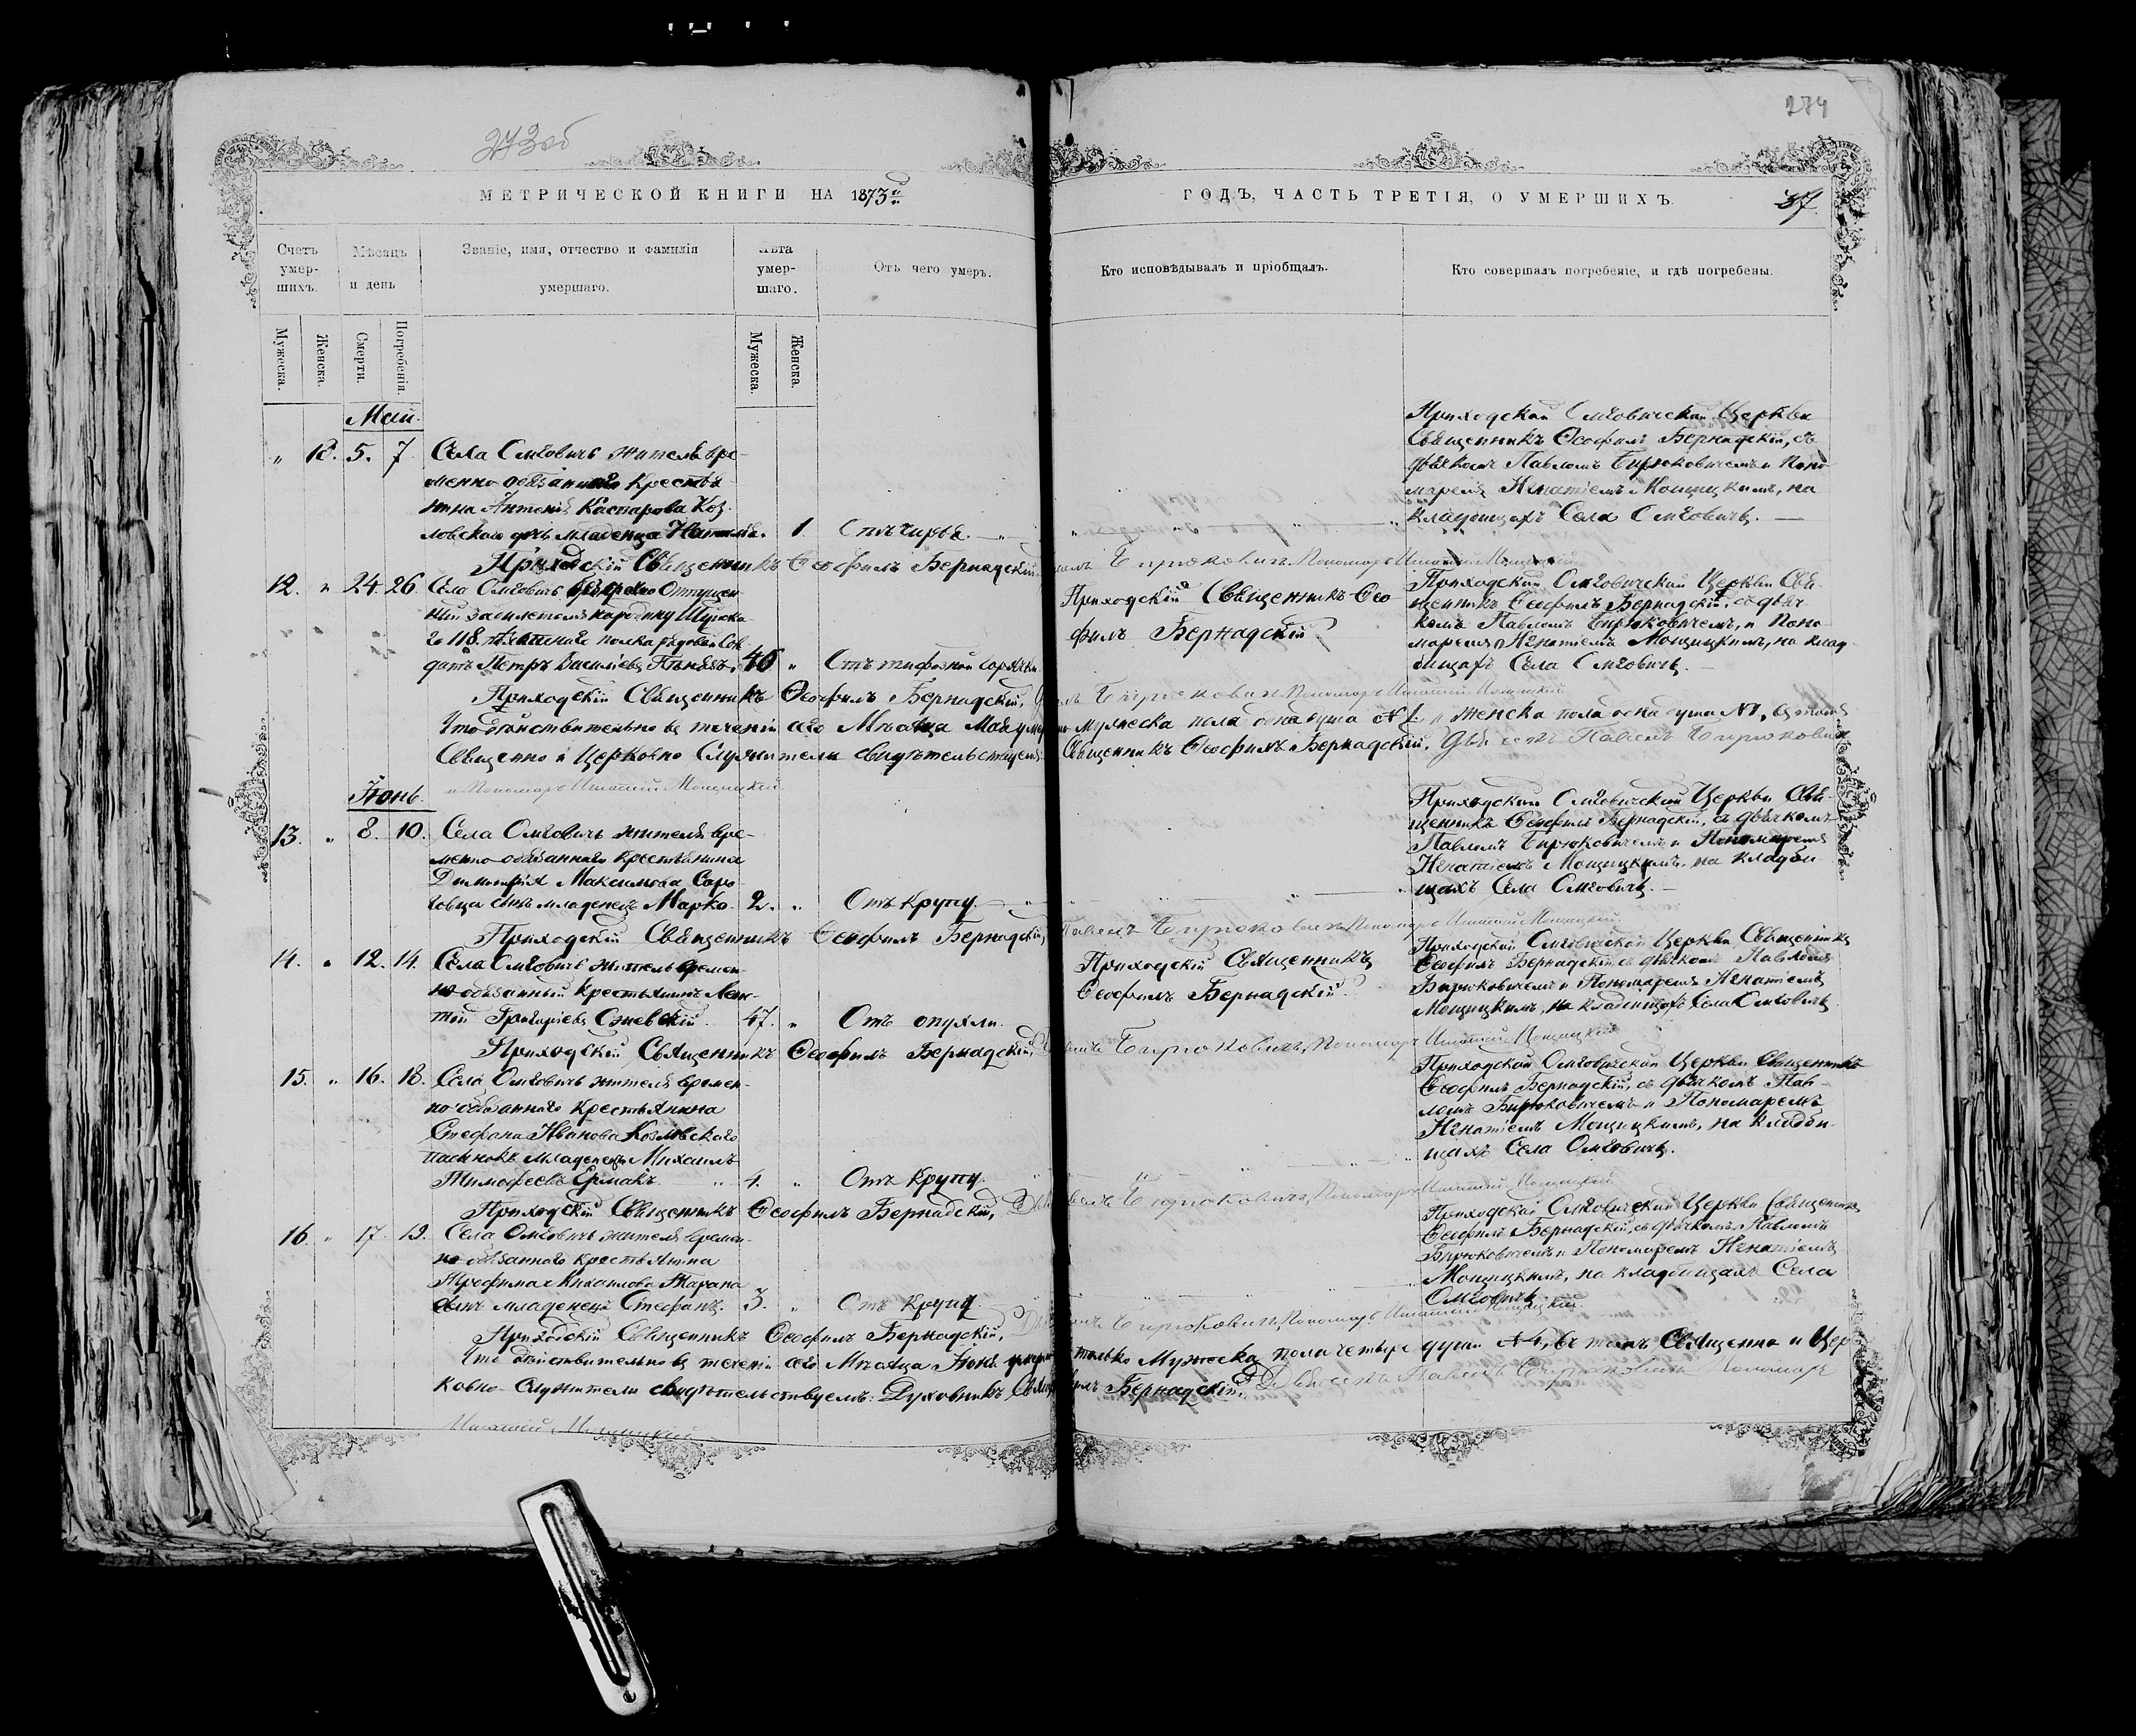 273об
274
МЕТРИЧЕСКОЙ КНИГИ НА 1873й
ГОДЪ, ЧАСТЬ ТРЕТІЯ, О УМЕРШИХЪ.
37.
Счетъ умер-шихъ.
Мѣсяцъ и день
Званіе, имя, отчество и фамилія умершаго.
Лѣта умер-шаго.
Отъ чего умеръ.
Кто исповѣдывалъ и пріобщалъ.
Кто совершалъ погребеніе, и гдѣ погребены.
Мужеска.
Женска.
Смерти.
Погребенія.
Мужеска.
Женска.
Май.
" 12. 5. 7. Села Омговичъ жителя вре-
менно-обязаннаго крестья-
нина Антонія Каспарова Коз-
ловскаго дочь младенца 1.
Приходской Омговичской Церкви
Священникъ Ѳеофилъ Бернадскій, съ
дьячкомъ Павломъ Бирюковичемъ и Поно-
маремъ Игнатіемъ Мощицкимъ, на
кладбищахъ Села Омговичъ.
Приходскій Священникъ Ѳеофилъ Бернадскій, Бирюковичъ, Пономарь Игнатій Мощицкій
12. " 24. 26. Села Омговичъ
118 полка рядовой
Петръ Василіевъ 46 " Отъ тифозной горячки
Приходскій Священникъ Ѳео-
филъ Бернадскій
Приходской Омговичской Церкви Свя-
щенникъ Ѳеофилъ Бернадскій, съ дьяч-
комъ Павломъ Бирюковичемъ, и Поно-
маремъ Игнатіемъ Мощицкимъ, на клад-
бищахъ Села Омговичъ.
Приходскій Священникъ Ѳеофилъ Бернадскій, Бирюковичъ, Пономарь Игнатій Мощицкій
Что дѣйствительно въ теченіи сего Мѣсяца Мая умерло мужеска пола одна душа №1 и женска пола одна душа №1, въ томъ
Священно и Церковно Служители свидѣтельствуемъ: Священникъ Ѳеофилъ Бернадскій, Дьячекъ Павелъ Бирюковичъ
и Пономарь Игнатій Мощицкій
Іюнь.
13. " 8. 10. Села Омговичъ жителя вре-
менно-обязаннаго крестьянина
Димитрія Максимова
сынъ младенецъ Марко. 2. " Отъ крупу.
Приходской Омговичской Церкви Свя-
щенникъ Ѳеофилъ Бернадскій, съ дьячкомъ
Павломъ Бирюковичемъ и Пономаремъ
Игнатіемъ Мощицкимъ, на кладби-
щахъ Села Омговичъ.
Приходскій Священникъ Ѳеофилъ Бернадскій, Павелъ Бирюковичъ, Пономарь Игнатій Мощицкій
14. " 12. 14. Села Омговичъ житель времен-
но-обязанный крестьянинъ
Григоріевъ 47. " Отъ опухли.
Приходскій Священникъ
Ѳеофилъ Бернадскій
Приходской Омговичской Церкви Священникъ
Ѳеофилъ Бернадскій съ дьячкомъ Павломъ
Бирюковичемъ и Пономаремъ Игнатіемъ
Мощицкимъ, на кладбищахъ Села Омговичъ.
Приходскій Священникъ Ѳеофилъ Бернадскій, Бирюковичъ, Пономарь Игнатій Мощицкій
15. " 16. 18. Села Омговичъ жителя времен-
но-обязаннаго крестьянина
Стефана Иванова Козловскаго
пасинокъ младенецъ Михаилъ
Тимофеевъ Ермакъ. 4. " Отъ крупу.
Приходской Омговичской Церкви Священникъ
Ѳеофилъ Бернадскій, съ дьячкомъ Пав-
ломъ Бирюковичемъ и Пономаремъ
Игнатіемъ Мощицкимъ, на кладби-
щахъ Села Омговичъ.
Приходскій Священникъ Ѳеофилъ Бернадскій, Бирюковичъ, Пономарь Игнатій Мощицкій
16. " 17. 19. Села Омговичъ жителя времен-
но-обязаннаго крестьянина
Трофима Михаилова Тарана
сынъ младенецъ Стефанъ. 3. " Отъ крупу.
Приходской Омговичской Церкви Священникъ
Ѳеофилъ Бернадскій, съ дьячкомъ Павломъ
Бирюковичемъ и Пономаремъ Игнатіемъ
Мощицкимъ, на кладбищахъ Села
Омговичъ.
Приходскій Священникъ Ѳеофилъ Бернадскій, Бирюковичъ, Пономарь Игнатій Мощицкій
Что дѣйствительно въ теченіи сего Мѣсяца Іюня умерло только мужеска пола четыре души №4, въ томъ Священно и Цер-
ковно-Служители свидѣтельствуемъ: Духовникъ, Бернадскій, Дьячекъ Павелъ Бирюковичъ Пономарь
Игнатій Мощицкій